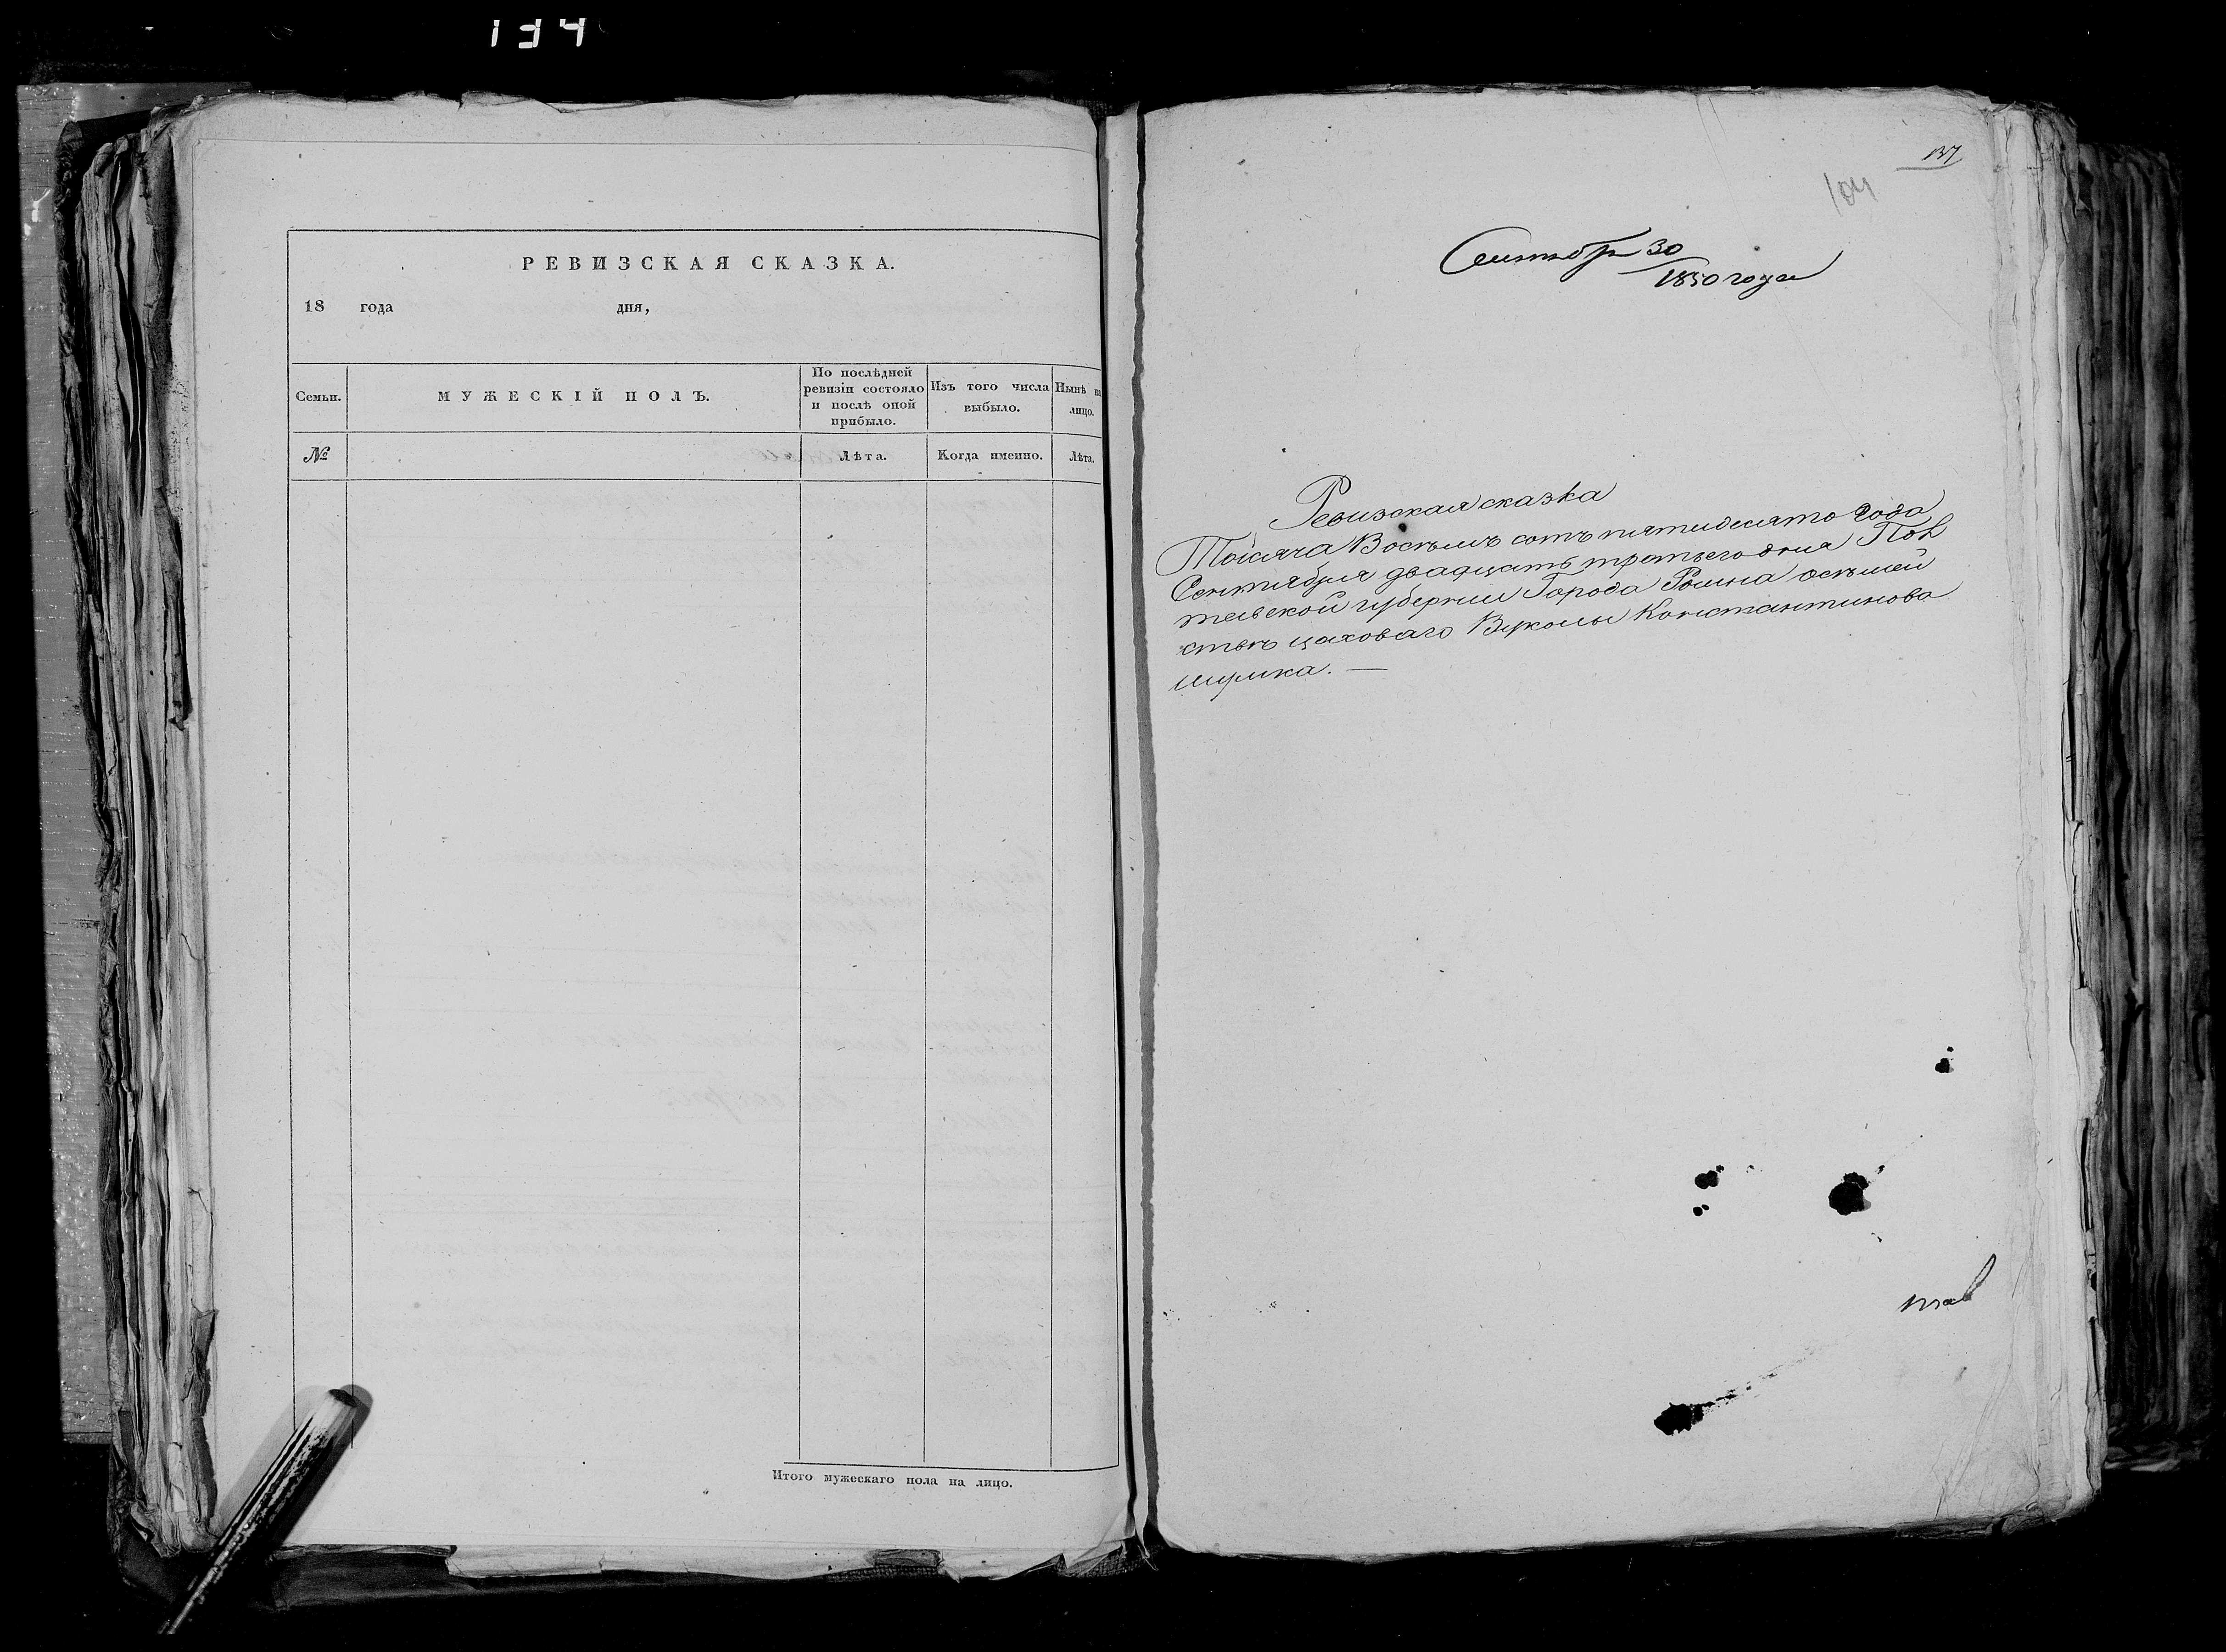 134
РЕВИЗСКАЯ СКАЗКА.
18 года дня,
Семьи. МУЖЕСКІЙ ПОЛЪ. По послѣдней ревизіи состояло и послѣ оной прибыло. Изъ того числа выбыло. Нынѣ на лицо.
№ Лѣта. Когда именно. Лѣта.
Итого мужескаго пола на лицо.
137
104
Сентября 30
1850 года
Ревизская сказка
Тысяча Восемь сотъ пятидесято года
Сентября двадцать третьего дня Пол
тавской губернии Города Ромна
цаховаго Вуколы Константинова